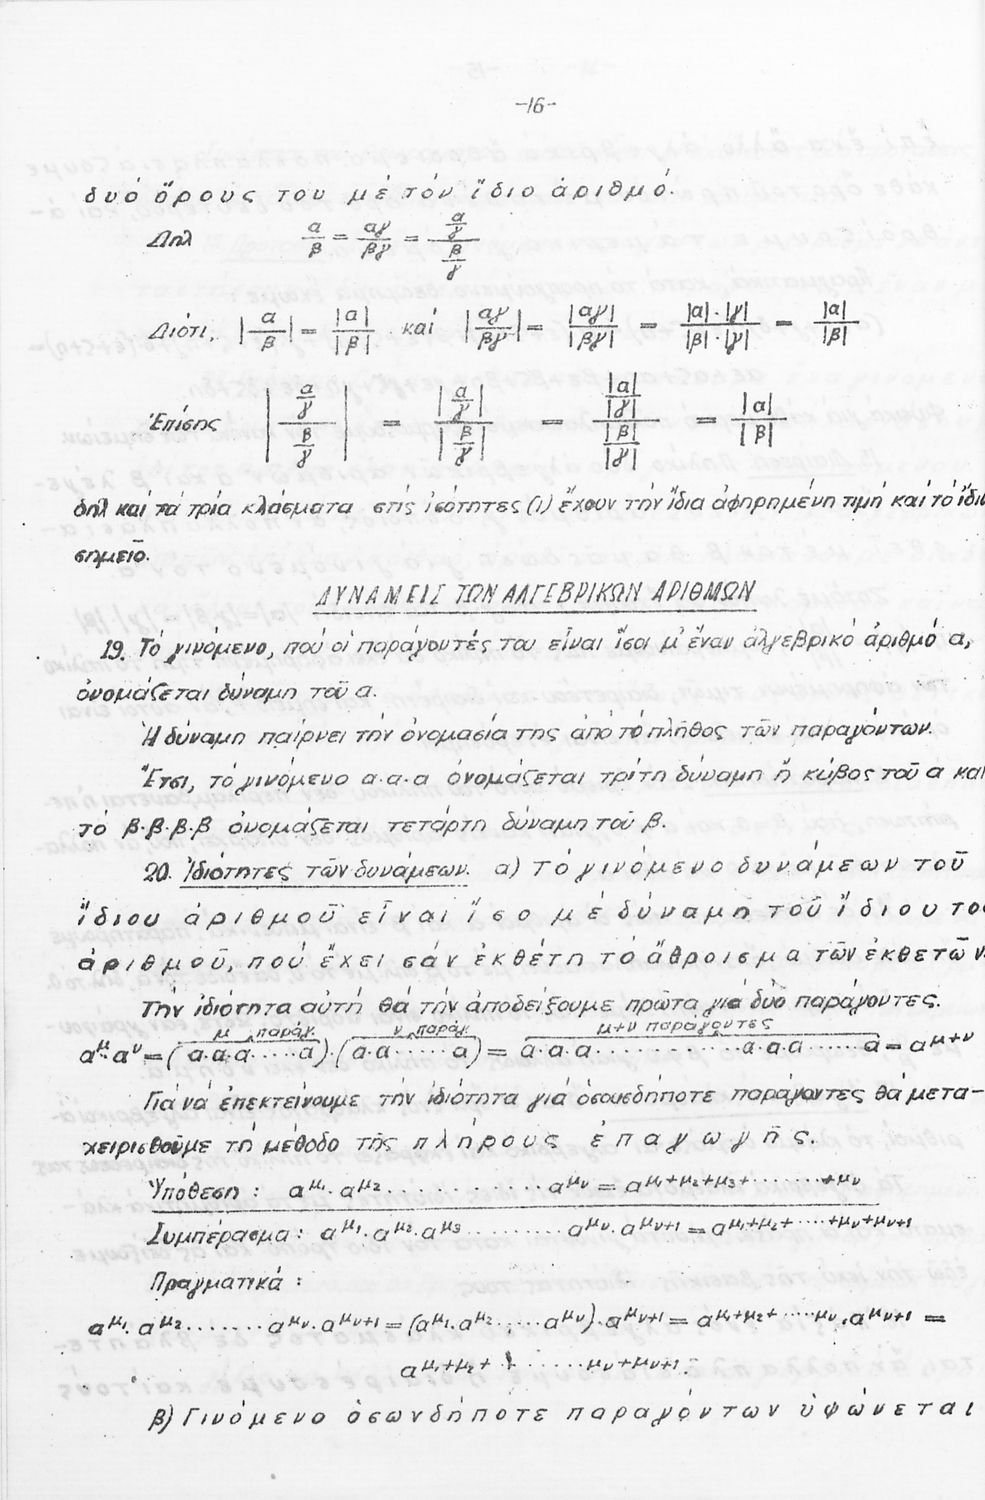 -16-
δυό ὅρους του μέ τόν ἴδιο ἀριθμό.
Δηλ α/β = αγ/βγ = (α/γ)/(β/γ)
Διότι, |α/β| = |α|/|β| καί |αγ/βγ| = |αγ|/|βγ| = |α|·|γ|/|β|·|γ| = |α|/|β|
Ἐπίσης |(α/γ)/(β/γ)| = |α/γ|/|β/γ| = (|α|/|γ|)/(|β|/|γ|) = |α|/|β|
δηλ καί τά τρία κλάσματα στίς ἰσότητες (1) ἔχουν τήν ἴδια ἀφηρημένη τιμή καί τό ἴδιο
σημεῖο.
ΔΥΝΑΜΕΙΣ ΤΩΝ ΑΛΓΕΒΡΙΚΩΝ ΑΡΙΘΜΩΝ
19. Τό γινόμενο, πού οἱ παράγοντές του εἶναι ἴσοι μ' ἕναν ἀλγεβρικό ἀριθμό α,
ὀνομάζεται δύναμη τοῦ α.
Ἡ δύναμη παίρνει τήν ὀνομασία της ἀπό τό πλῆθος τῶν παραγόντων.
Ἔτσι, τό γινόμενο α·α·α ὀνομάζεται τρίτη δύναμη ἤ κύβος τοῦ α και
τό β·β·β·β ὀνομάζεται τετάρτη δύναμη τοῦ β.
20. Ἰδιότητες τῶν δυνάμεων. α) Τό γινόμενο δυνάμεων τοῦ
ἴδιου ἀριθμοῦ εἶναι ἴσο μέ δύναμη τοῦ ἴδιου του
ἀριθμοῦ, πού ἔχει σάν ἐκθέτη τό ἄθροισμα τῶν ἐκθετῶν.
Τήν ἰδιότητα αὐτή θά τήν ἀποδείξουμε πρῶτα γιά δύο παράγοντες.
μ παράγ. ν παράγ. μ+ν παράγοντες
α^μ·α^ν = (α·α·α·····α)·(α·α·····α) = α·α·α···········α·α·α·····α = α^μ+ν
Γιά νά ἐπεκτείνουμε τήν ἰδιότητα γιά ὁσουσδήποτε παράγοντες θά μετα-
χειρισθοῦμε τή μέθοδο τῆς πλήρους ἐπαγωγῆς.
Ὑπόθεση: α^μ1·α^μ2···········α^μν = α^μ1+μ2+μ3+········+μν
Συμπέρασμα: α^μ1·α^μ2·α^μ3·········α^μν·α^μν+1 = α^μ1+μ2+····+μν+μν+1
Πραγματικά:
α^μ1·α^μ2·······α^μν·α^μν+1 = (α^μ1·α^μ2·····α^μν)·α^μν+1 = α^μ1+μ2+····μν·α^μν+1 =
α^μ1+μ2+·······μν+μν+1.
β) Γινόμενο ὁσωνδήποτε παραγόντων ὑψώνεται